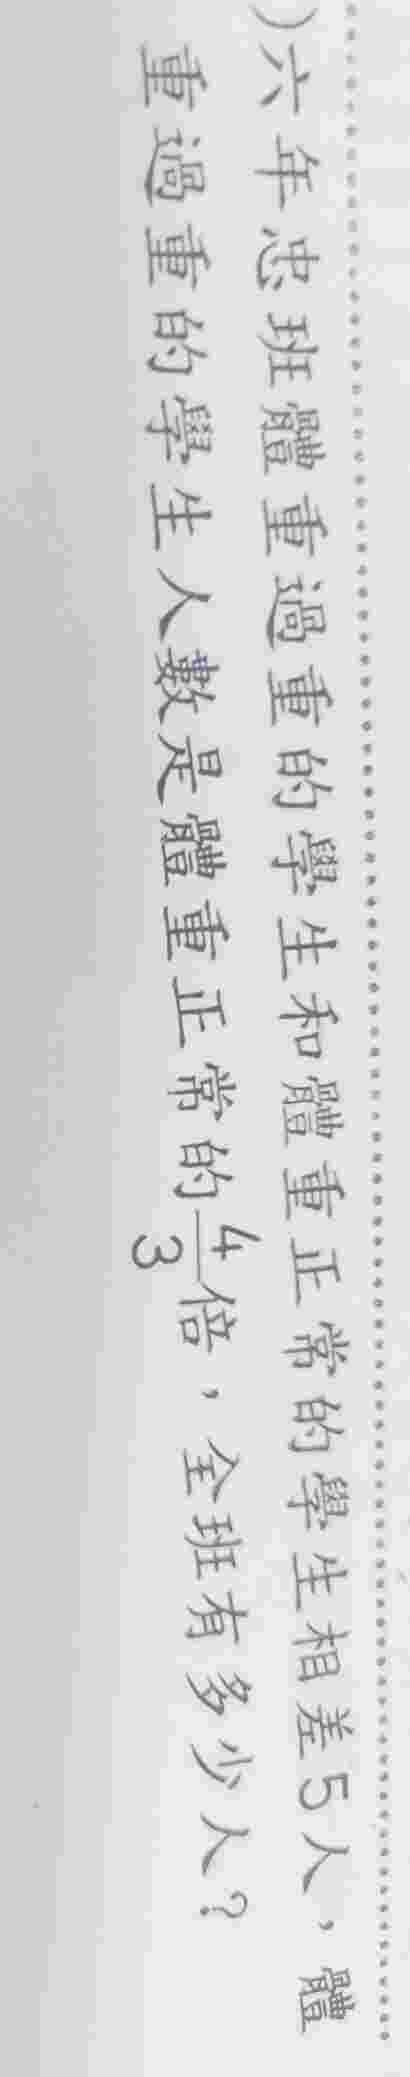 )六年忠班體重過重的學生和體重正常的學生相差5人，體
重過重的學生人數是體重正常的4/3倍，全班有多少人？